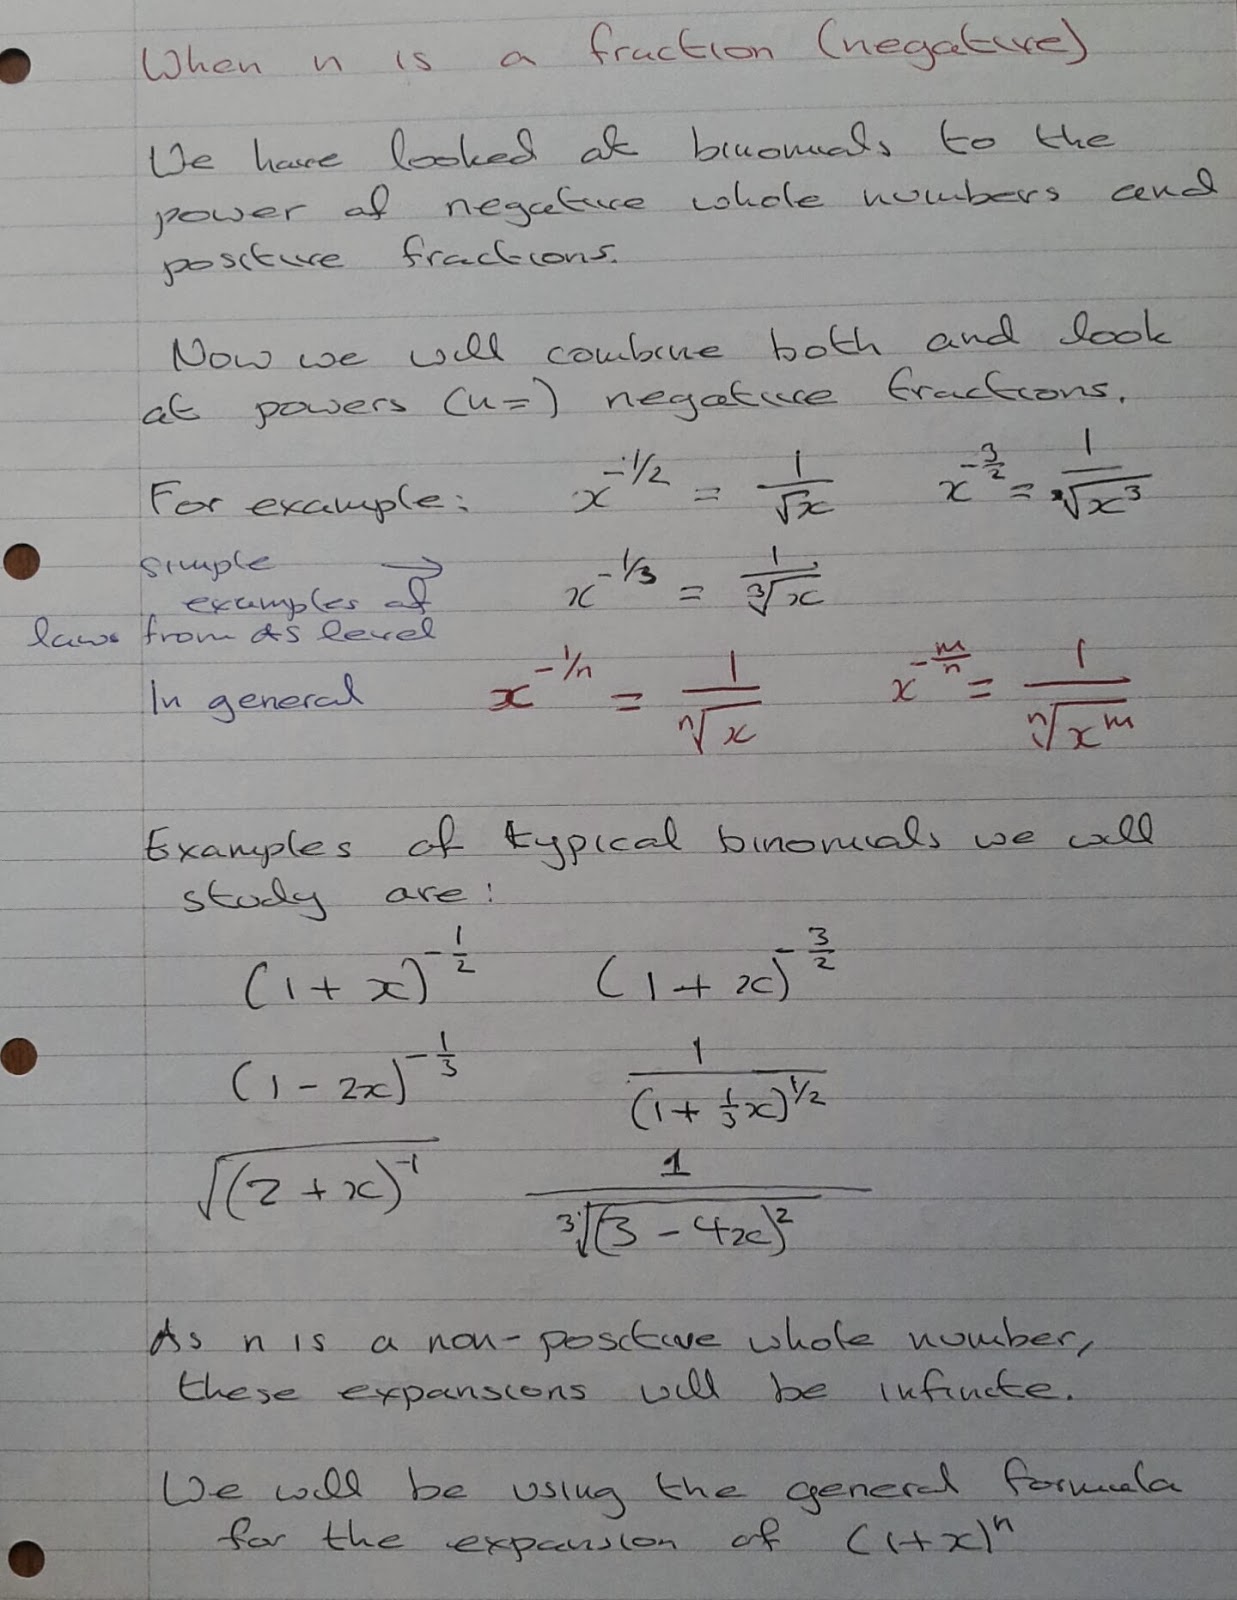 When n is a fraction (negative)
We have looked at binomials to the
power of negative whole numbers and
positive fractions.
Now we will combine both and look
at powers (n=) negative fractions.
For example: x^{-1/2} = 1/√x x^{-3/2} = 1/²√x³
simple → x^{-1/3} = 1/³√x
examples of
laws from AS level
In general x^{-1/n} = 1/ⁿ√x x^{-m/n} = 1/ⁿ√x^m
Examples of typical binomials we will
study are:
(1 + x)^{-1/2} (1 + x)^{-3/2}
(1 - 2x)^{-1/3} 1/(1 + 1/3 x)^{1/2}
√(2 + x)^{-1} 1/³√(3 - 4x)²
As n is a non-positive whole number,
these expansions will be infinite.
We will be using the general formula
for the expansion of (1+x)^n